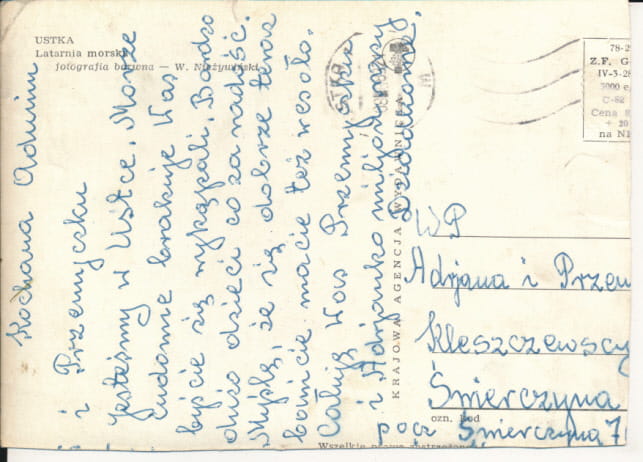 USTKA
Latarnia morska
fotografia barwna — W. Nieżywiński
Kochana Adminu
i Przemyczku
Jesteśmy w Ustce. Morze
cudowne brakuje Was
byście się wykąpali. Bardzo
dużo dzieci co za radość.
Myślę, że się dobrze teraz
bawicie macie też wesoło.
Całuję Was Przemyczku
i Adrjanko miljard razy
Dziadziowie.
KRAJOWA AGENCJA WYDAWNICZA
78-2
Z.F. G
IV-3-28
3000 e
C-82
Cena 8
+ 20
na N
WP
Adrjana i Przem
Kleszczewscy
Świerczyna
ozn. kod
pocz Świerczyna 7
Wszelkie prawa zastrzeżone